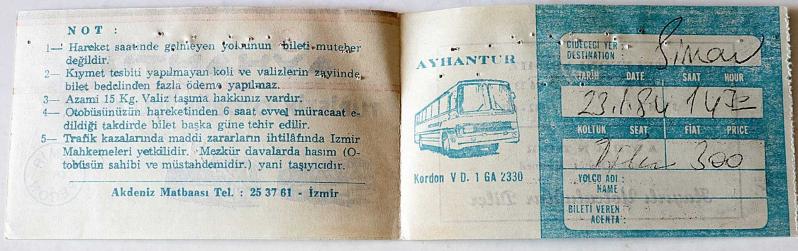 NOT :
1— Hareket saatinde gelmeyen yolcunun bileti muteber
değildir.
2— Kıymet tesbiti yapılmayan koli ve valizlerin zayiinde
bilet bedelinden fazla ödeme yapılmaz.
3— Azami 15 Kg. Valiz taşıma hakkınız vardır.
4— Otobüsünüzün hareketinden 6 saat evvel müracaat e-
dildiği takdirde bilet başka güne tehir edilir.
5— Trafik kazalarında maddi zararların ihtilâfında İzmir
Mahkemeleri yetkilidir. Mezkûr davalarda hasım (O-
tobüsün sahibi ve müstahdemidir.) yani taşıyıcıdır.
Akdeniz Matbaası Tel. : 25 37 61 - İzmir
AYHANTUR
Kordon V D. 1 GA 2330
GİDECEĞİ YER
DESTINATION : Simav
TARİH DATE SAAT HOUR
23.1.84
KOLTUK SEAT FİAT. PRICE
300
YOLCU ADI :
NAME
BİLETİ VEREN
ACENTA :